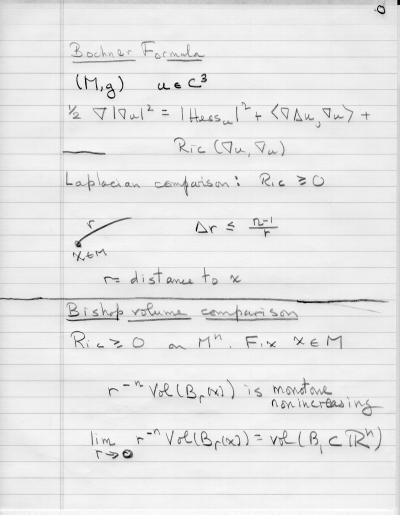 0
Bochner Formula
(M,g) u ∈ C³
½ ∇|∇u|² = |Hess_u|² + ⟨∇Δu, ∇u⟩ +
Ric (∇u, ∇u)
Laplacian comparison: Ric ≥ 0
r
Δr ≤ n-1/r
x∈M
r = distance to x
Bishop volume comparison
Ric ≥ 0 on Mⁿ. Fix x ∈ M
r⁻ⁿ Vol(B_r(x)) is monotone
nonincreasing
lim r⁻ⁿ Vol(B_r(x)) = vol(B₁ ⊂ ℝⁿ)
r→0